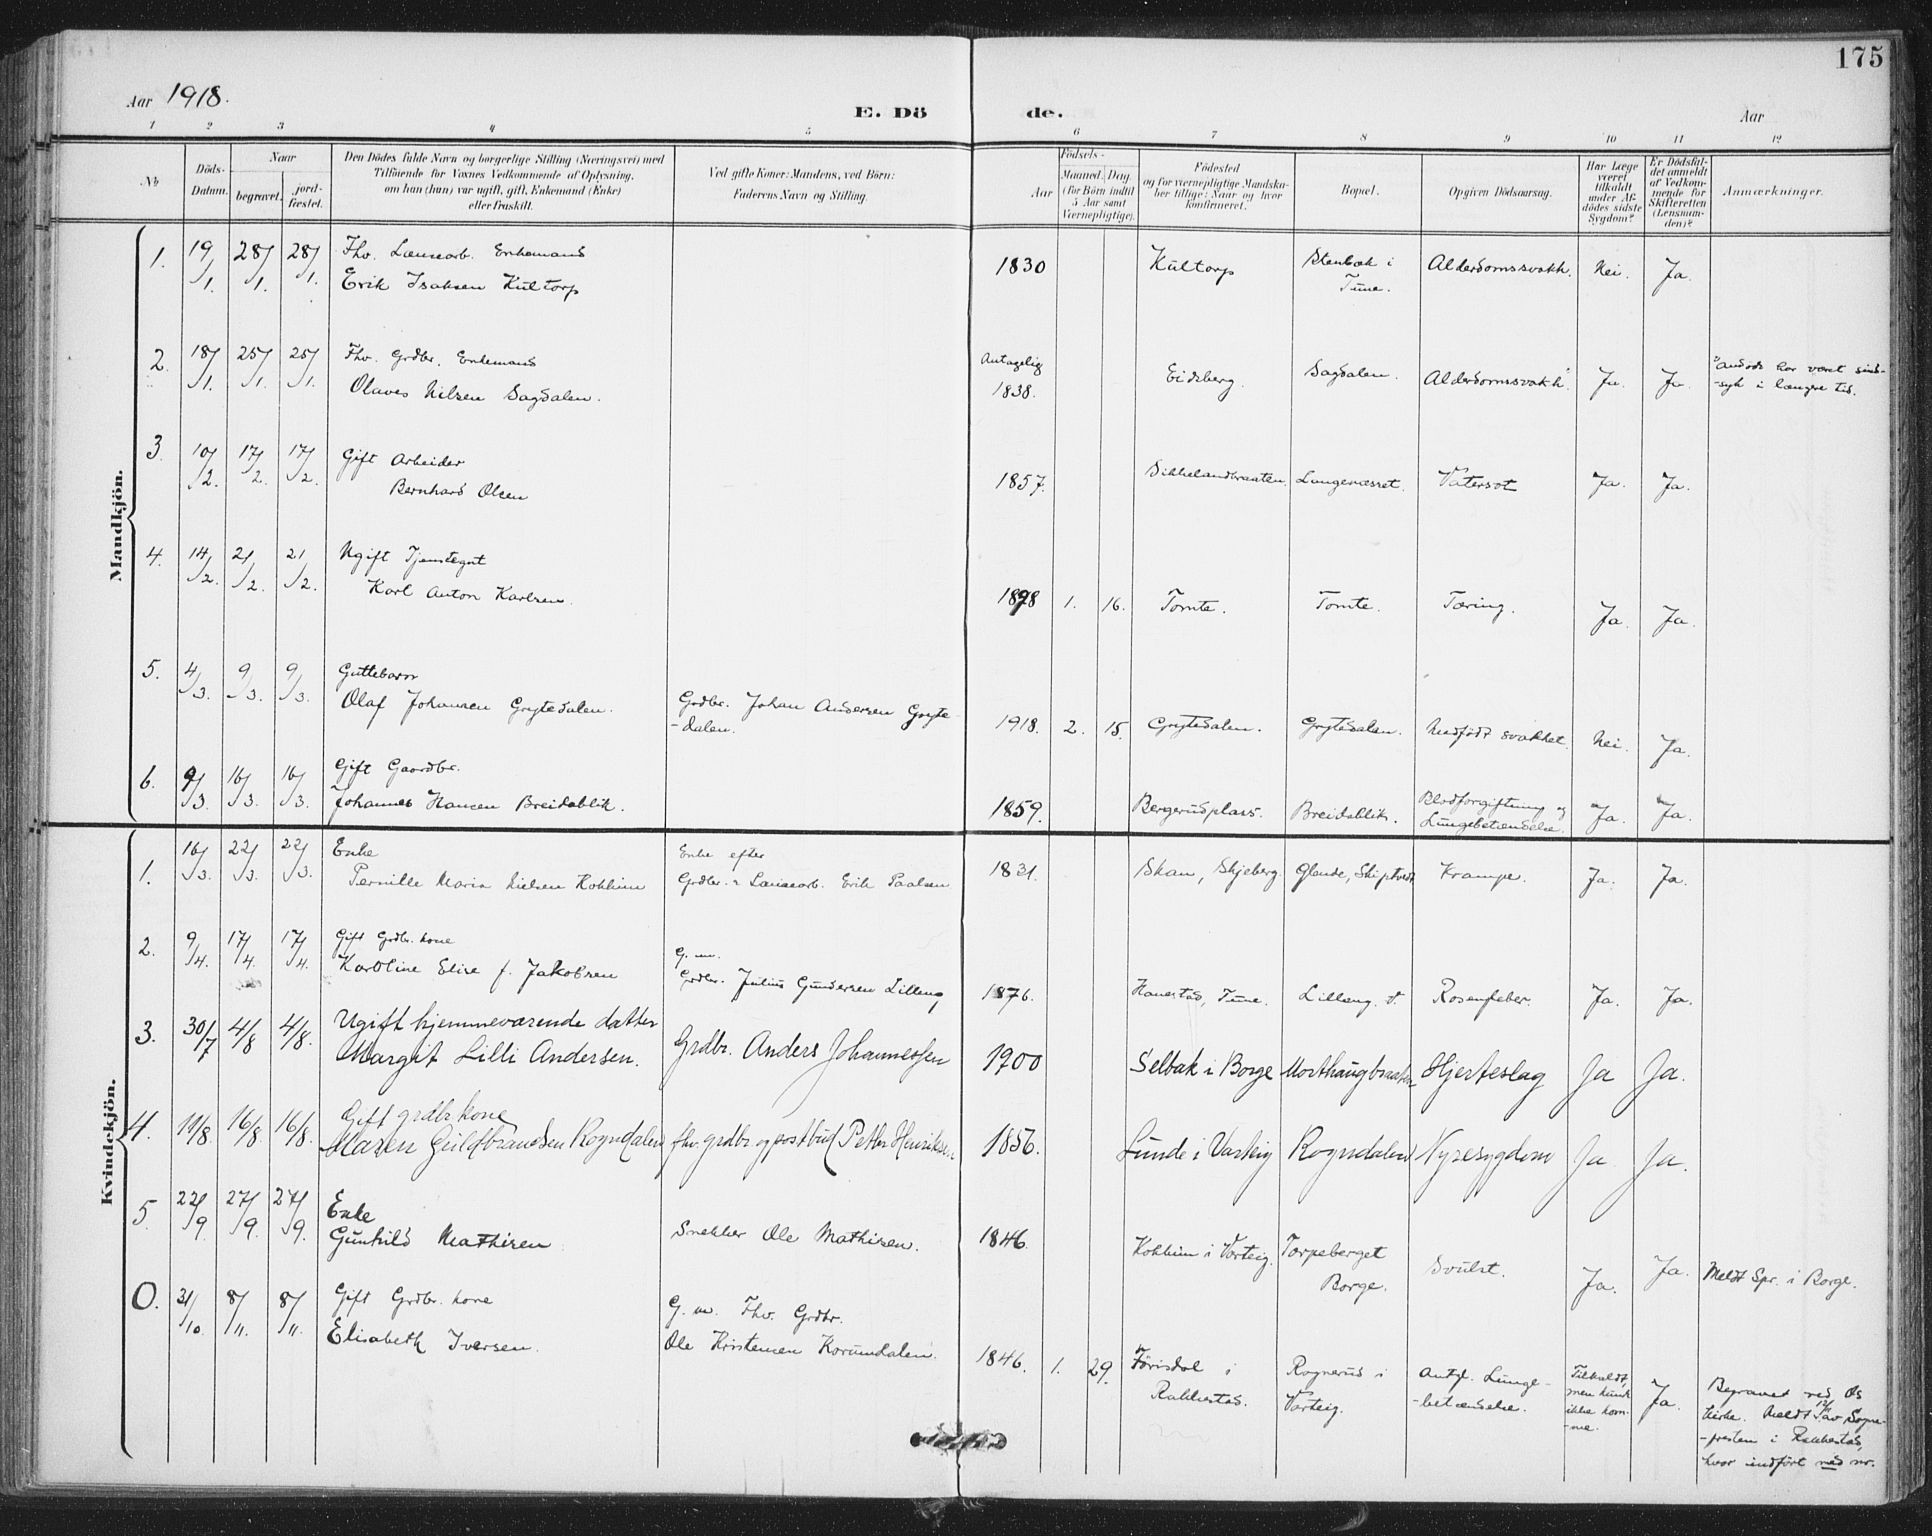 175
Aar 1918.
E. Döde.
Aar
1 2 3 4 5 6 7 8 9 10 11 12
No
Döds-Datum.
Naar
begravet.
jord-fæstet.
Den Dödes fulde Navn og borgerlige Stilling (Næringsvei) med
Tilföiende for Voxnes Vedkommende af Oplysning,
om han (hun) var ugift, gift, Enkemand (Enke)
eller fraskilt.
Ved gifte Koner: Mandens, ved Börn:
Faderens Navn og Stilling.
Födsels-
Aar
Maaned. Dag.
(for Börn indtil
5 Aar samt
Værnepligtige).
Födested
og for værnepligtige Mandska-
ber tillige: Naar og hvor
konfirmeret.
Bopæl.
Opgiven Dödsaarsag.
Har Læge
været
tilkaldt
under Af-
dödes sidste
Sygdom?
Er Dödsfal-
det anmeldt
af Vedkom-
mende for
Skifteretten
(Lensman-
den)?
Anmærkninger.
Mandkjön.
1. 19/1. 28/1. 28/1. Fhv. Lænsearb. Enkemand
Erik Isaksen Kultorp
1830 Kultorp Stenbæk i
Tune.
Alderdomssvakh. Nei. Ja.
2. 18/1. 25/1. 25/1. Fhv. Grdbr. Enkemand
Olaves Nilsen Sagdalen.
Antagelig
1838. Eidsberg. Sagdalen. Alderdomssvakh. Ja. Ja.
har været sind-
-syk i længre tid.
3. 10/2. 17/2. 17/2. Gift Arbeider
Bernhard Olsen
1857. Sikkelandbraaten. Langenæsset. Vatersot Ja. Ja.
4. 14/2. 21/2. 21/2. Ugift Tjenstegut
Karl Anton Karlsen.
1898 1. 16. Tomte. Tomte. Tæring. Ja. Ja.
5. 4/3. 9/3. 9/3. Guttebarn
Olaf Johansen Grytedalen.
Grdbr. Johan Andersen Gryte-
-dalen.
1918. 2. 15. Grytedalen. Grytedalen. Medfödt svakhet. Nei. Ja.
6. 9/3. 16/3. 16/3. Gift Gaardbr.
Johannes Hansen Breidablik.
1859. Bergerudplass. Breidablik. Blodforgiftning og
Lungebetændelse. Ja. Ja.
Kvindekjön.
1. 16/3. 22/3. 22/3. Enke
Pernille Maria Nielsen Kohhim
Enke efter
Grdbr. & Lænsearb. Erik Paalsen
1831. Skan, Skjeberg. Glende, Skiptvedt Krampe. Ja. Ja.
2. 9/4. 17/4. 17/4. Gift Grdbr. kone
Karoline Elise f. Jakobsen
G. m.
Grdbr. Julius Gundersen Lilleng
1876. Hanestad, Tune. Lilleng. Rosenfeber. Ja. Ja.
3. 30/7 4/8 4/8. Ugift hjemmeværende datter
Margit Lilli Andersen.
Grdbr. Anders Johannessen
1900 Selbak i Borge Morthaugbraaten Hjerteslag Ja Ja.
4. 11/8. 16/8. 16/8. Gift grdbr. kone
Maren Guldbrandsen Rogndalen
fhv. grdbr og postbud Petter Henriksen
1856. Lunde i Varteig Rogndalen Nyresygdom Ja Ja.
5. 22/9. 27/9. 27/9. Enke
Gunhild Mathisen
Snekker Ole Mathisen.
1846. Kohhim i Varteig. Torpeberget
Borge.
Svulst. Ja. Ja. Meldt Spr. i Borge.
0. 31/10. 8/11. 8/11. Gift Grdbr. kone
Elisabeth Iversen.
G. m. Fhv. Grdbr.
Ole Kristensen Korumdalen.
1846. 1. 29. Førisdal i
Rakkestad.
Rognerud i
Varteig.
Antgl. Lunge-
-betændelse.
Tilkaldt,
men kunde
ikke kom-
-me.
Ja.
Begravet ved Os
kirke. Meldt 12/11 av Sogne-
-presten i Rakkestad,
hvor indført med nr.